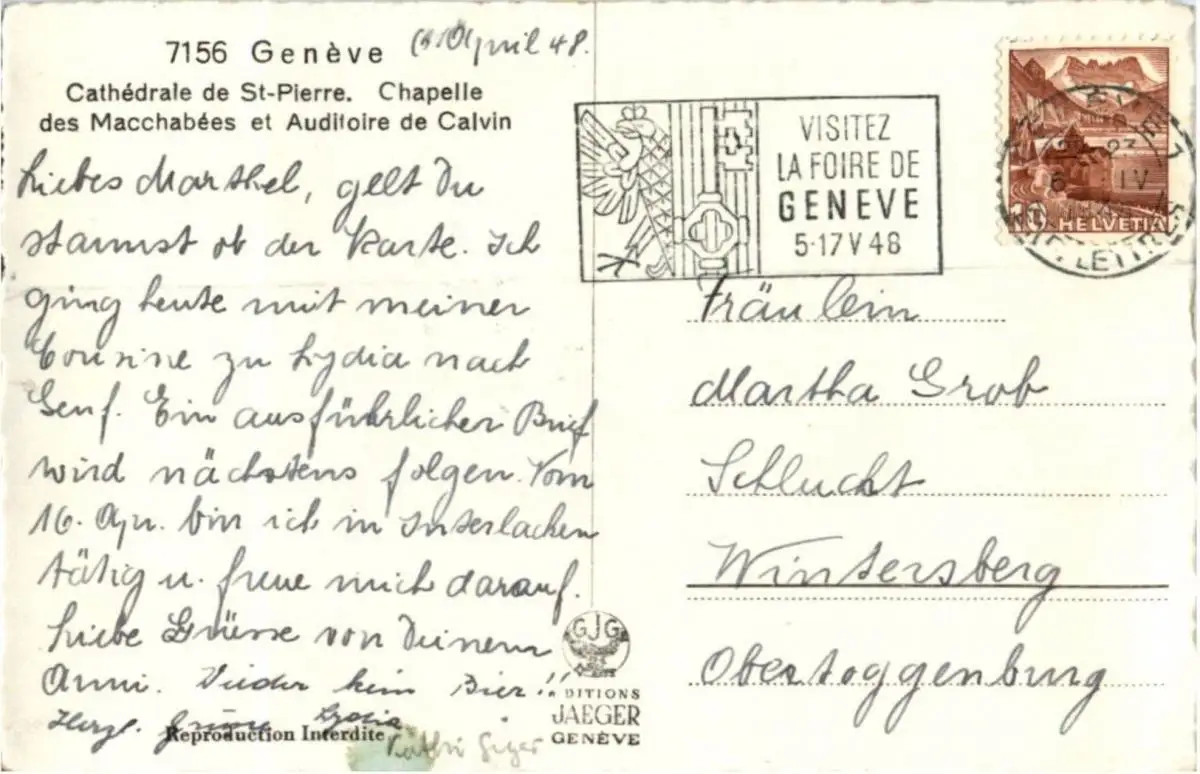 7156 Genève
April 48.
Cathédrale de St-Pierre. Chapelle
des Macchabées et Auditoire de Calvin
Liebes Marthel, gelt Du
staunst ob der Karte. Ich
ging heute mit meiner
Cousine zu Lydia nach
Genf. Ein ausführlicher Brief
wird nächstens folgen. Vom
16. Apr. bin ich in Interlacken
tätig u. freue mich darauf.
Liebe Grüsse von Deinem
Anni. Wieder kein Bier!!
Herzl. Grüsse Lydia
Reproduction Interdite
VISITEZ
LA FOIRE DE
GENEVE
5-17 V 48
10 HELVETIA
Fräulein
Martha Grob
Schlucht
Wintersberg
Obertoggenburg
GJG
EDITIONS
JAEGER
GENÈVE